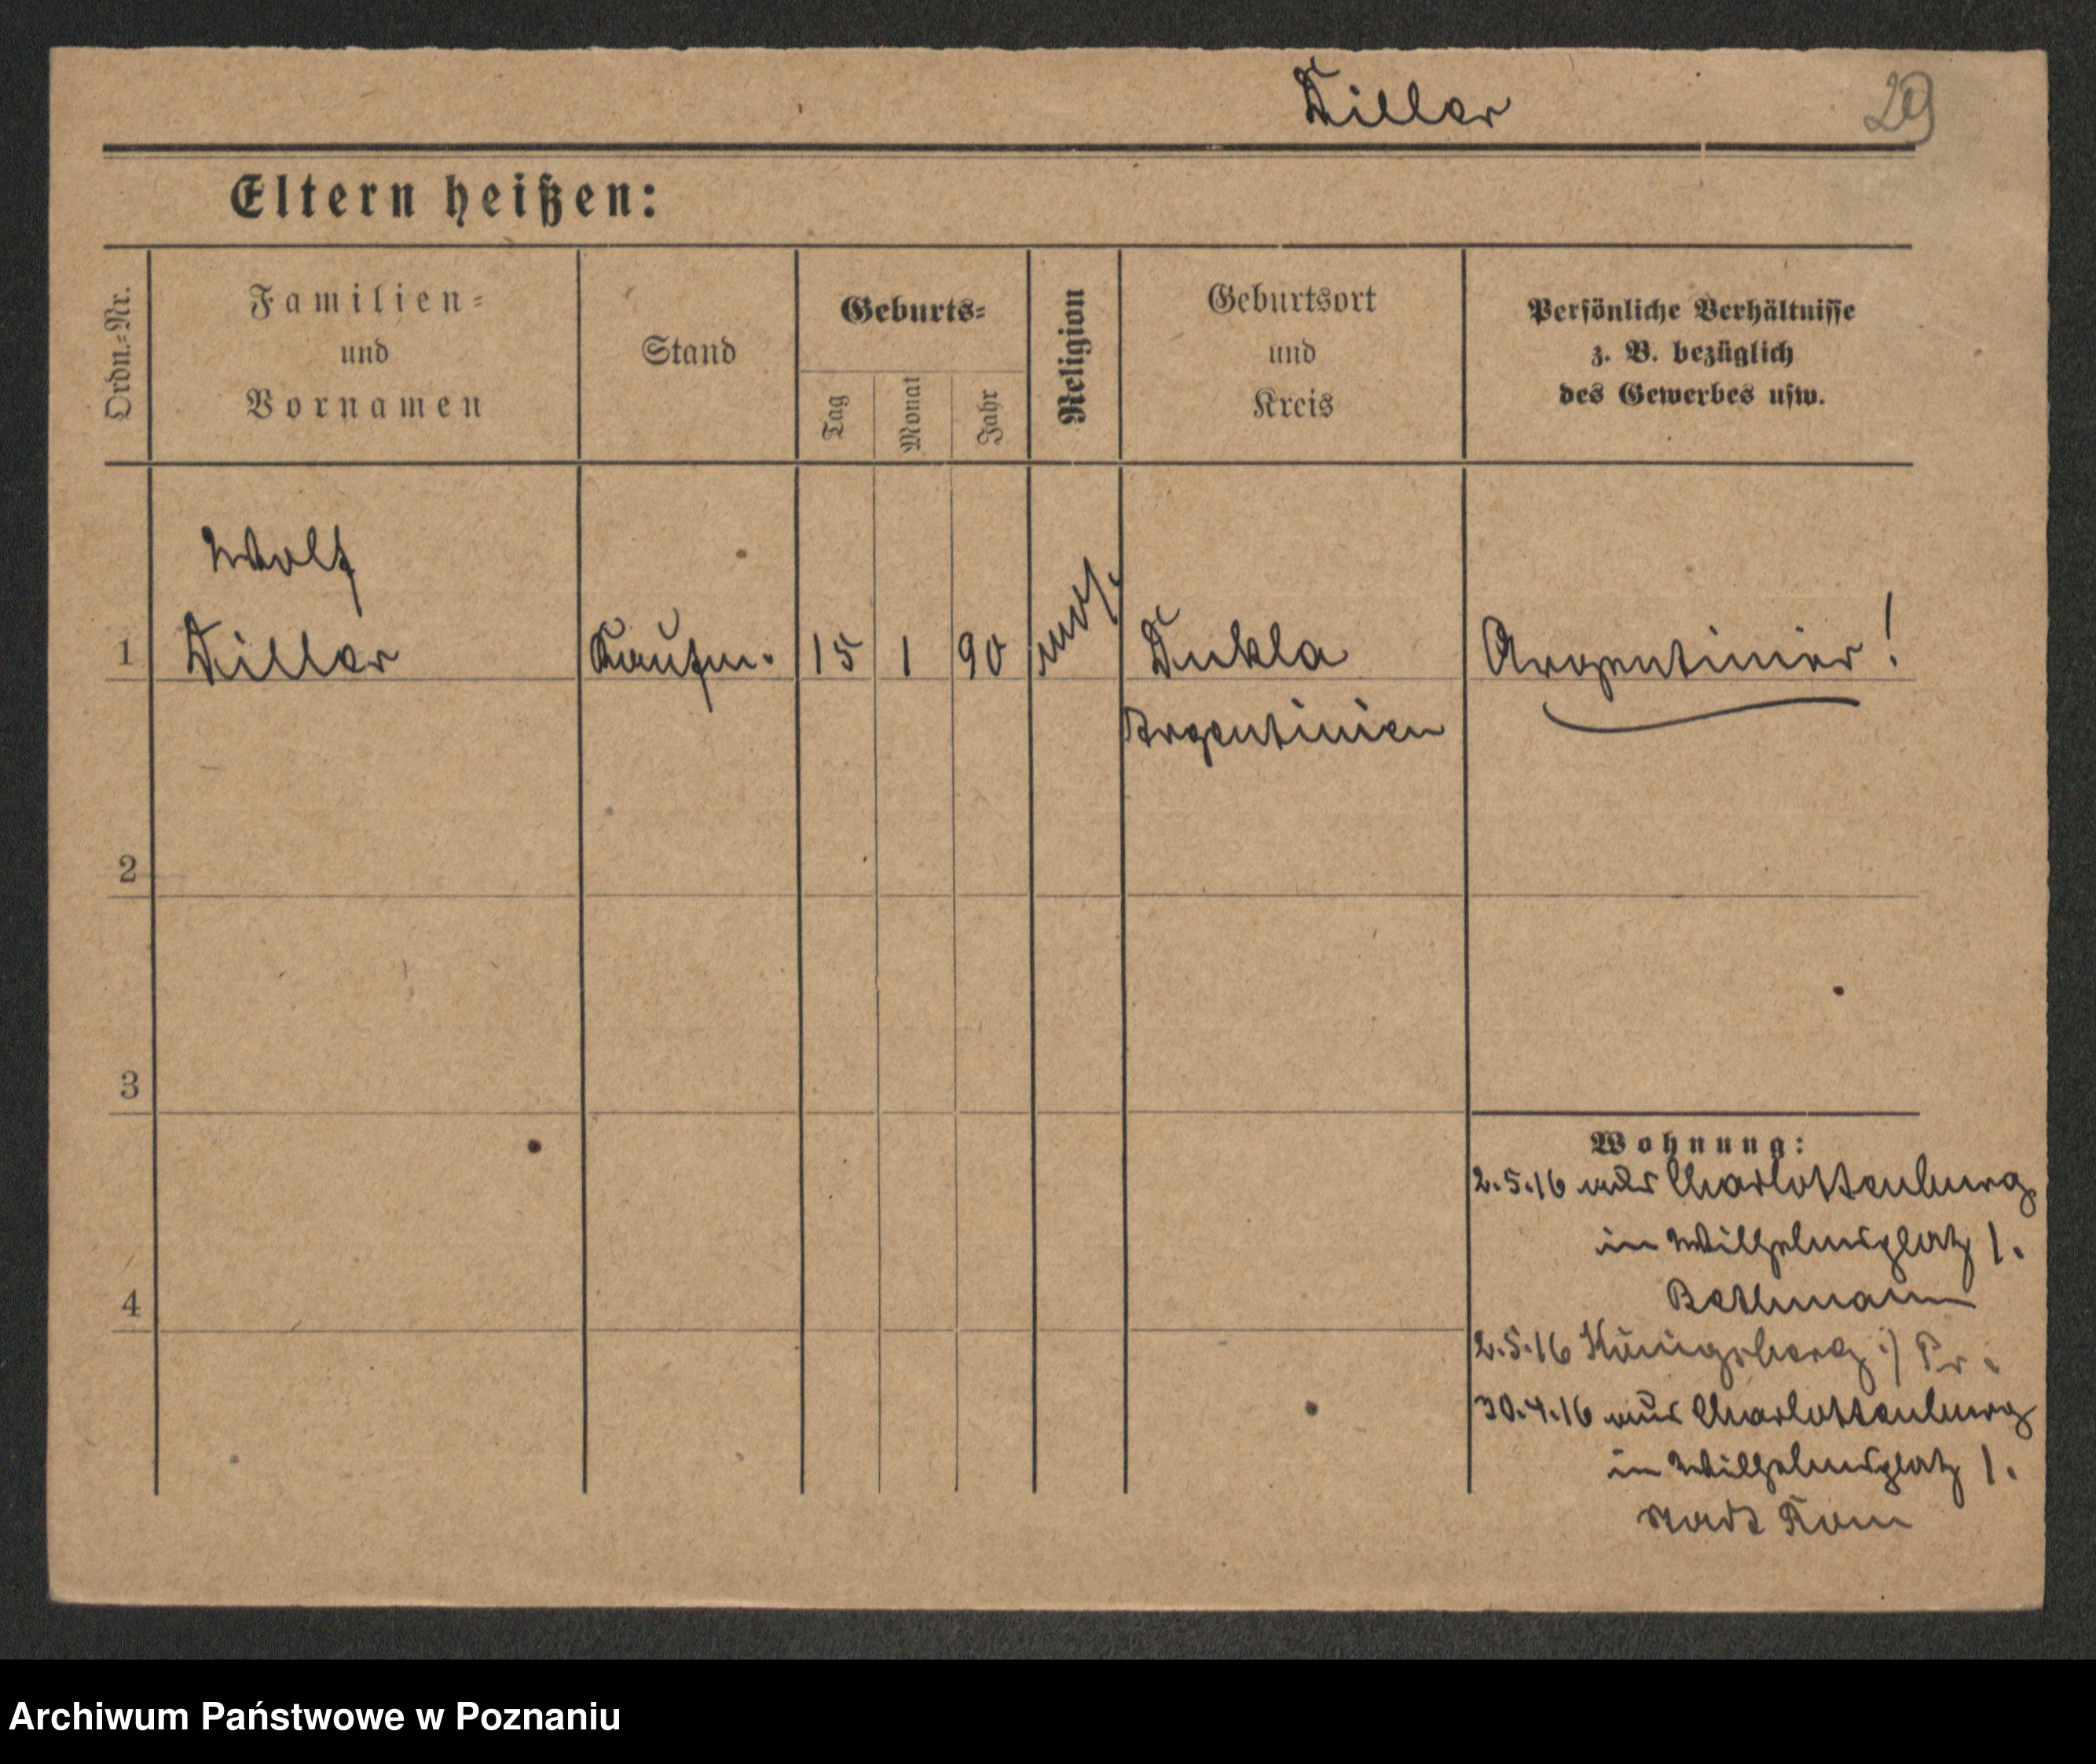 Diller
29
Eltern heißen:
Ordn.=Nr.
Familien=
und
Vornamen
Stand
Geburts=
Tag
Monat
Jahr
Religion
Geburtsort
und
Kreis
Persönliche Verhältnisse
z. B. bezüglich
des Gewerbes usw.
Wolf
1 Diller Kaufm. 15 1 90 mos. Dukla Argentinier!
Argentinien
2
3
4
Wohnung:
2.5.16 aus Charlottenburg
in Wilhelmsplatz 1.
Bethmann
2.5.16 Königsberg i/ Pr.
30.4.16 aus Charlottenburg
in Wilhelmsplatz 1.
Stadt Rom
Archiwum Państwowe w Poznaniu